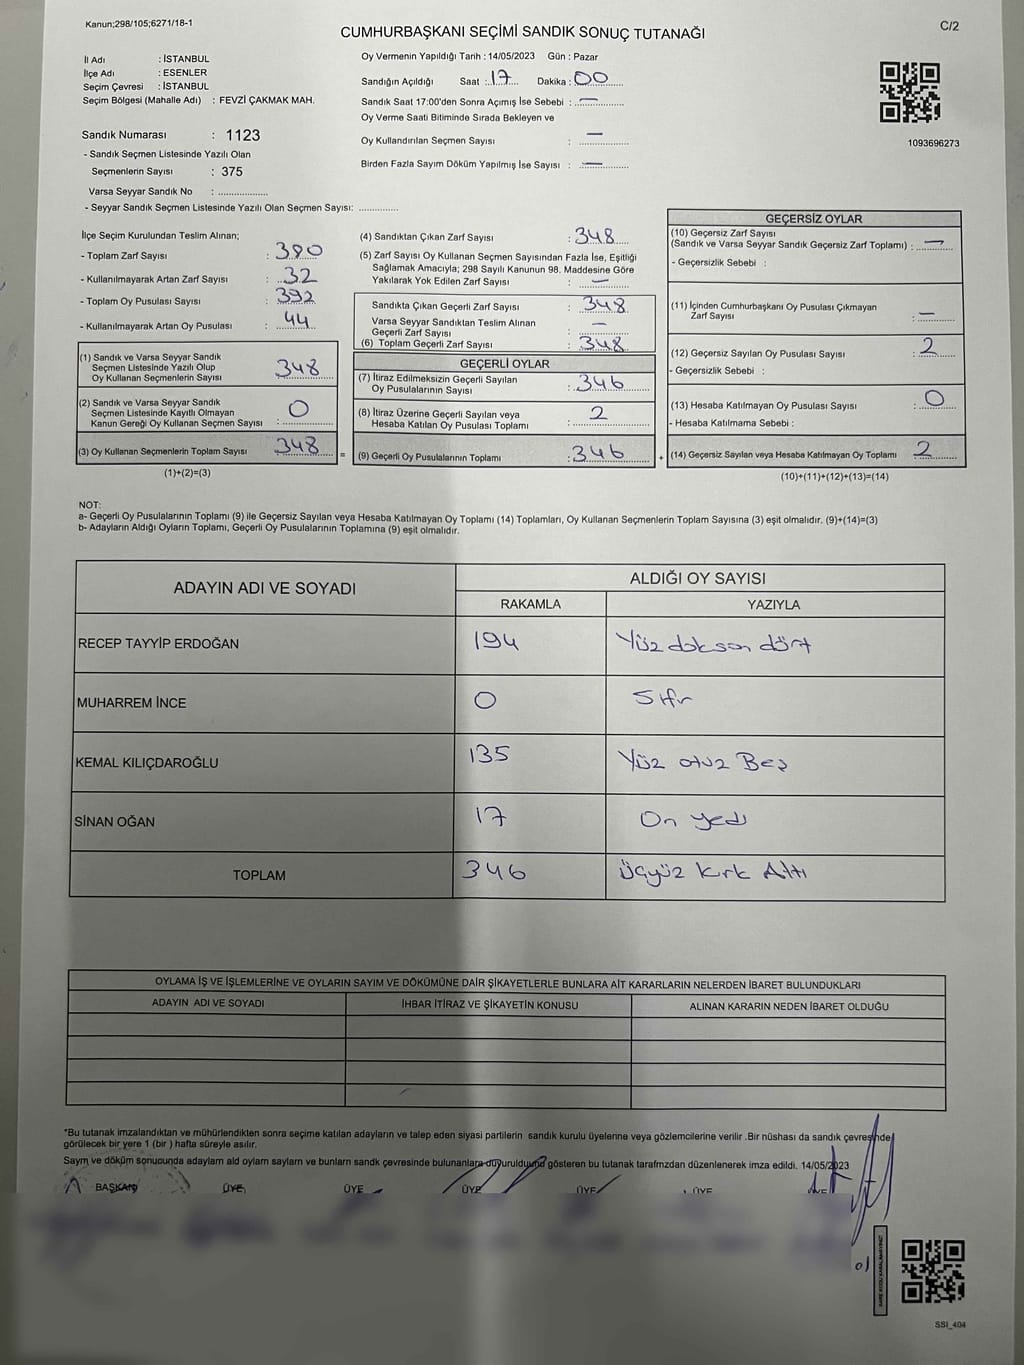 Kanun;298/105;6271/18-1
C/2
CUMHURBAŞKANI SEÇİMİ SANDIK SONUÇ TUTANAĞI
İl Adı : İSTANBUL
İlçe Adı : ESENLER
Seçim Çevresi : İSTANBUL
Seçim Bölgesi (Mahalle Adı) : FEVZİ ÇAKMAK MAH.
Sandık Numarası : 1123
- Sandık Seçmen Listesinde Yazılı Olan
Seçmenlerin Sayısı : 375
Varsa Seyyar Sandık No : ...................
- Seyyar Sandık Seçmen Listesinde Yazılı Olan Seçmen Sayısı: ..............
Oy Vermenin Yapıldığı Tarih : 14/05/2023 Gün : Pazar
Sandığın Açıldığı Saat : 17 Dakika : 00
Sandık Saat 17:00'den Sonra Açımış İse Sebebi : —
Oy Verme Saati Bitiminde Sırada Bekleyen ve
Oy Kullandırılan Seçmen Sayısı : —
Birden Fazla Sayım Döküm Yapılmış İse Sayısı : —
1093696273
İlçe Seçim Kurulundan Teslim Alınan;
- Toplam Zarf Sayısı : 380
- Kullanılmayarak Artan Zarf Sayısı : 32
- Toplam Oy Pusulası Sayısı : 392
- Kullanılmayarak Artan Oy Pusulası : 44
(1) Sandık ve Varsa Seyyar Sandık
Seçmen Listesinde Yazılı Olup
Oy Kullanan Seçmenlerin Sayısı 348
(2) Sandık ve Varsa Seyyar Sandık
Seçmen Listesinde Kayıtlı Olmayan
Kanun Gereği Oy Kullanan Seçmen Sayısı : 0
(3) Oy Kullanan Seçmenlerin Toplam Sayısı 348
(1)+(2)=(3)
(4) Sandıktan Çıkan Zarf Sayısı : 348
(5) Zarf Sayısı Oy Kullanan Seçmen Sayısından Fazla İse, Eşitliği
Sağlamak Amacıyla; 298 Sayılı Kanunun 98. Maddesine Göre
Yakılarak Yok Edilen Zarf Sayısı : —
Sandıkta Çıkan Geçerli Zarf Sayısı : 348
Varsa Seyyar Sandıktan Teslim Alınan
Geçerli Zarf Sayısı : —
(6) Toplam Geçerli Zarf Sayısı : 348
GEÇERLİ OYLAR
(7) İtiraz Edilmeksizin Geçerli Sayılan
Oy Pusulalarının Sayısı : 346
(8) İtiraz Üzerine Geçerli Sayılan veya
Hesaba Katılan Oy Pusulası Toplamı : 2
= (9) Geçerli Oy Pusulalarının Toplamı : 346 +
GEÇERSİZ OYLAR
(10) Geçersiz Zarf Sayısı
(Sandık ve Varsa Seyyar Sandık Geçersiz Zarf Toplamı) : —
- Geçersizlik Sebebi :
(11) İçinden Cumhurbaşkanı Oy Pusulası Çıkmayan
Zarf Sayısı : —
(12) Geçersiz Sayılan Oy Pusulası Sayısı : 2
- Geçersizlik Sebebi :
(13) Hesaba Katılmayan Oy Pusulası Sayısı : 0
- Hesaba Katılmama Sebebi :
(14) Geçersiz Sayılan veya Hesaba Katılmayan Oy Toplamı 2
(10)+(11)+(12)+(13)=(14)
NOT:
a- Geçerli Oy Pusulalarının Toplamı (9) ile Geçersiz Sayılan veya Hesaba Katılmayan Oy Toplamı (14) Toplamları, Oy Kullanan Seçmenlerin Toplam Sayısına (3) eşit olmalıdır. (9)+(14)=(3)
b- Adayların Aldığı Oyların Toplamı, Geçerli Oy Pusulalarının Toplamına (9) eşit olmalıdır.
ADAYIN ADI VE SOYADI
ALDIĞI OY SAYISI
RAKAMLA YAZIYLA
RECEP TAYYİP ERDOĞAN 194 Yüz doksan dört
MUHARREM İNCE 0 Sıfır
KEMAL KILIÇDAROĞLU 135 Yüz otuz Beş
SİNAN OĞAN 17 On yedi
TOPLAM 346 Üçyüz kırk Altı
OYLAMA İŞ VE İŞLEMLERİNE VE OYLARIN SAYIM VE DÖKÜMÜNE DAİR ŞİKAYETLERLE BUNLARA AİT KARARLARIN NELERDEN İBARET BULUNDUKLARI
ADAYIN ADI VE SOYADI İHBAR İTİRAZ VE ŞİKAYETİN KONUSU ALINAN KARARIN NEDEN İBARET OLDUĞU
*Bu tutanak imzalandıktan ve mühürlendikten sonra seçime katılan adayların ve talep eden siyasi partilerin sandık kurulu üyelerine veya gözlemcilerine verilir .Bir nüshası da sandık çevresinde
görülecek bir yere 1 (bir ) hafta süreyle asılır.
Sayım ve döküm sonucunda adayların ald oyların sayların ve bunların sandk çevresinde bulunanlara duyurulduunu gösteren bu tutanak tarafmzdan düzenlenerek imza edildi. 14/05/2023
BAŞKAN ÜYE ÜYE ÜYE ÜYE ÜYE ÜYE
SSI_404